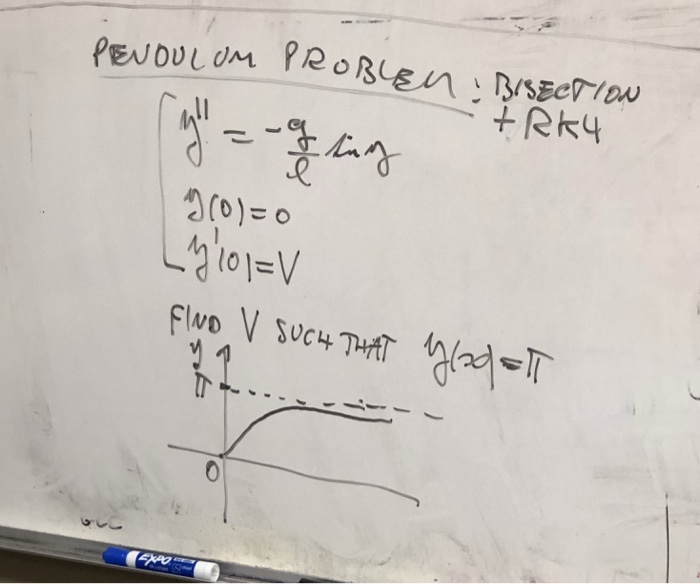 PENDULUM PROBLEM: BISECTION
+ RK4
y'' = -g/l sin y
y(0)=0
y'(0)=V
FIND V SUCH THAT y(∞)=π
y
π
0
EXPO